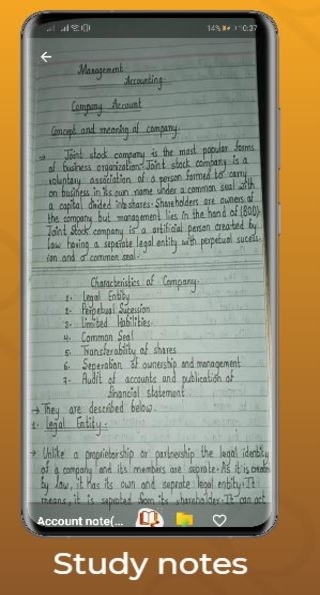 14% 10:37
Management
Accounting
Company Account
Concept and meaning of company.
→ Joint stock company is the most popular forms
of business organization. Joint stock company is a
voluntary association of a person formed to carry
on business in its own name under a common seal with
a capital divided into shares. Shareholders are owners of
the company but management lies in the hand of (BOD).
Joint stock company is a artificial person created by
law having a seperate legal entity with perpetual
ion and a common seal.
Characteristics of Company.
1. Legal Entity
2. Perpetual
3. Limited liabilities
4. Common Seal
5. Transferability of shares
6. Seperation of ownership and management
7. Audit of accounts and publication of
financial statement.
→ They are described below.
1. Legal Entity.
→ Unlike a proprietorship or partnership the legal identity
of a company and its members are seprate. As it is
by law, it has its own and seprate legal entity. It
means, it is seprated from its shareholder. It can act
Account note(...
Study notes